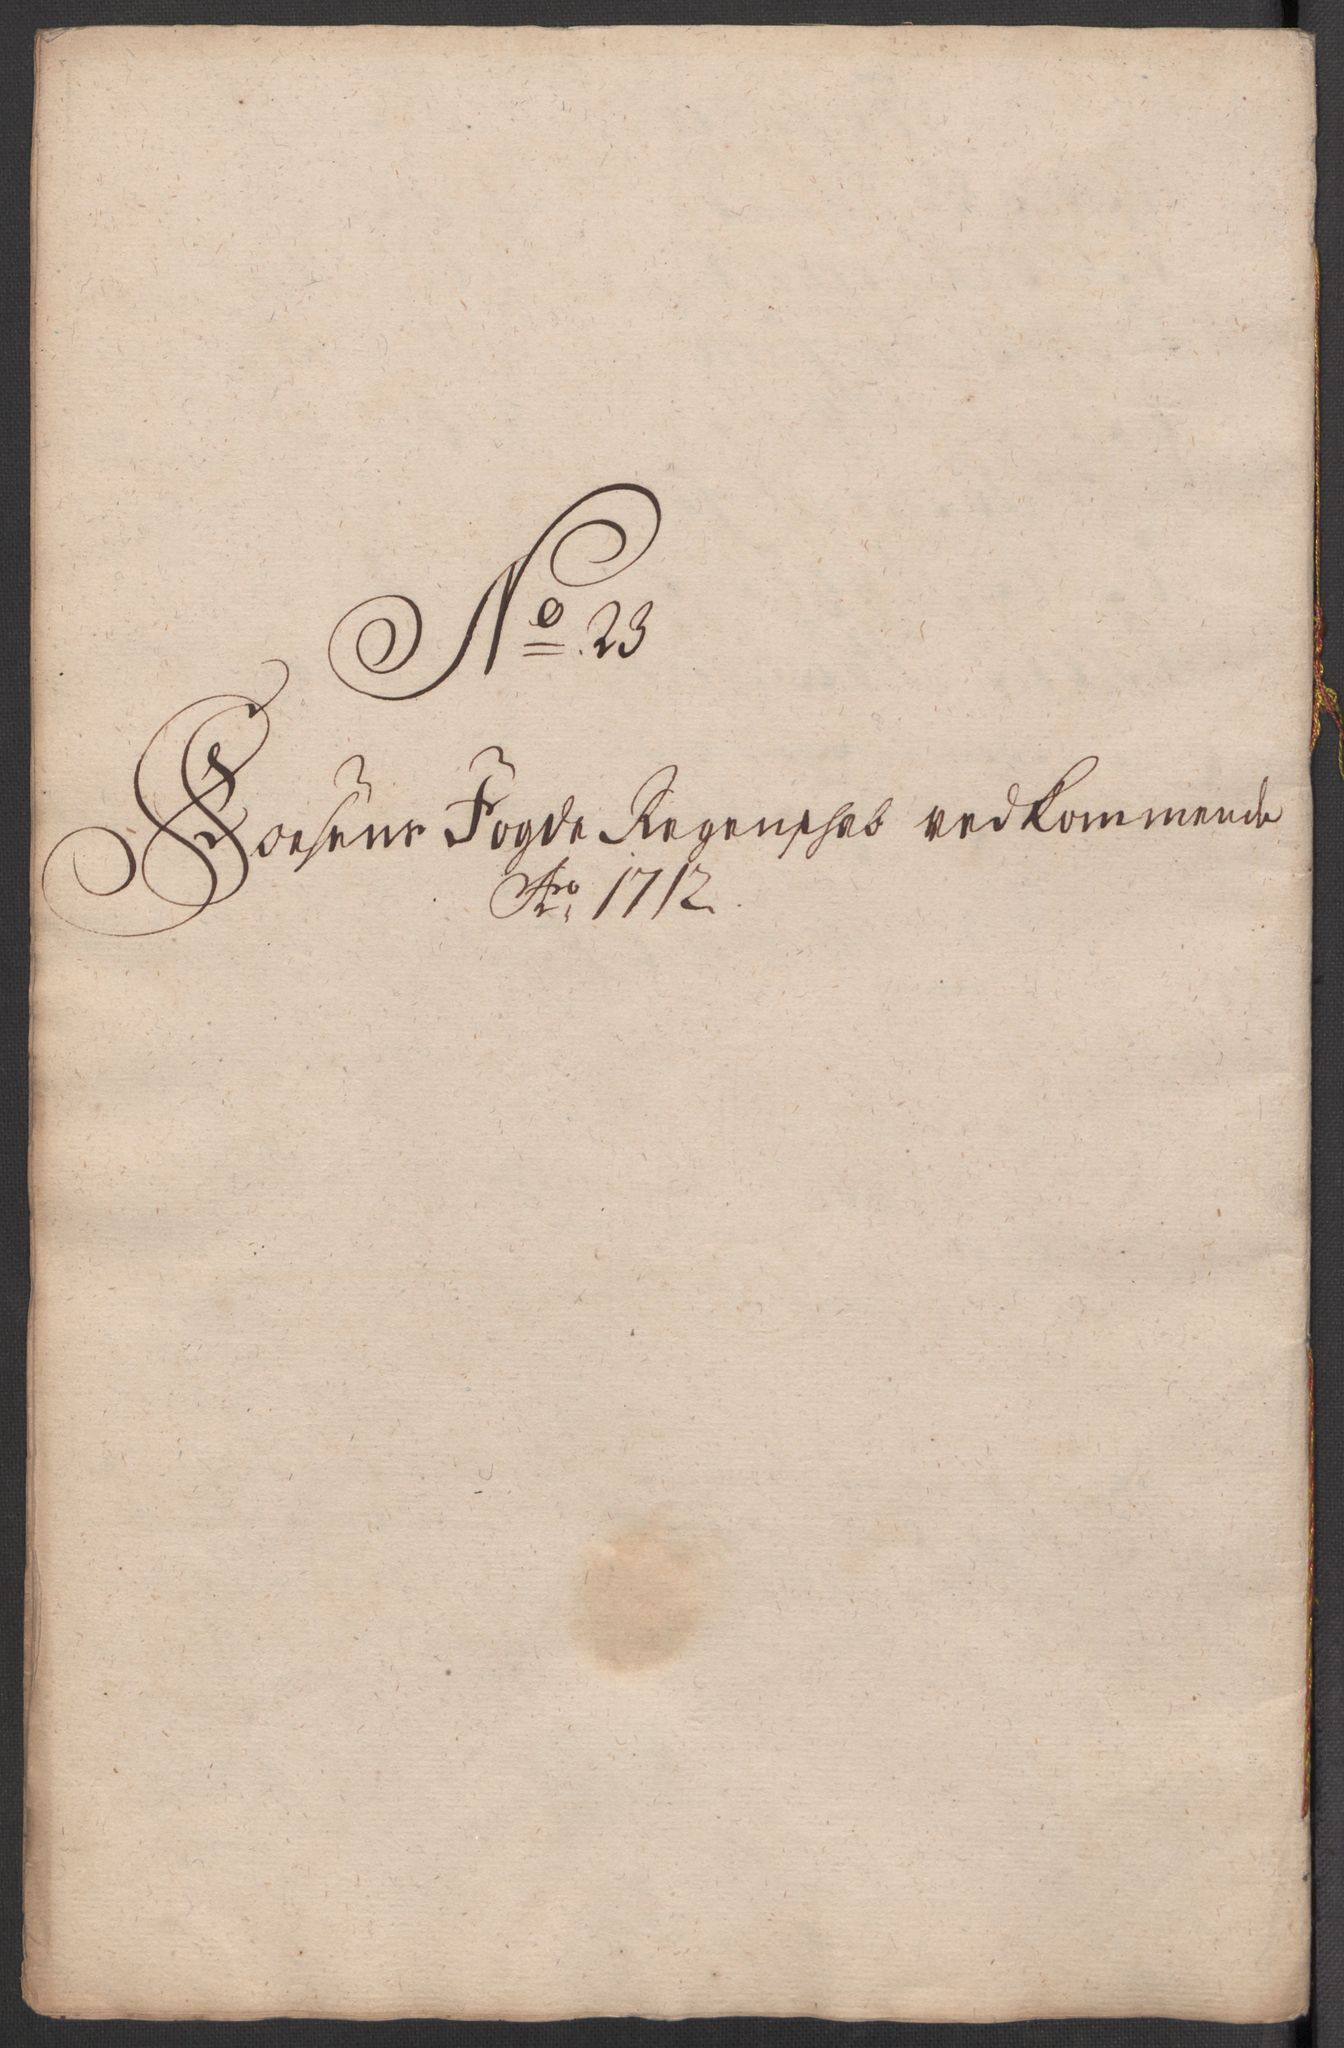 No. 23
Fosens Fogde Regenskab vedkommende
Ao. 1712.